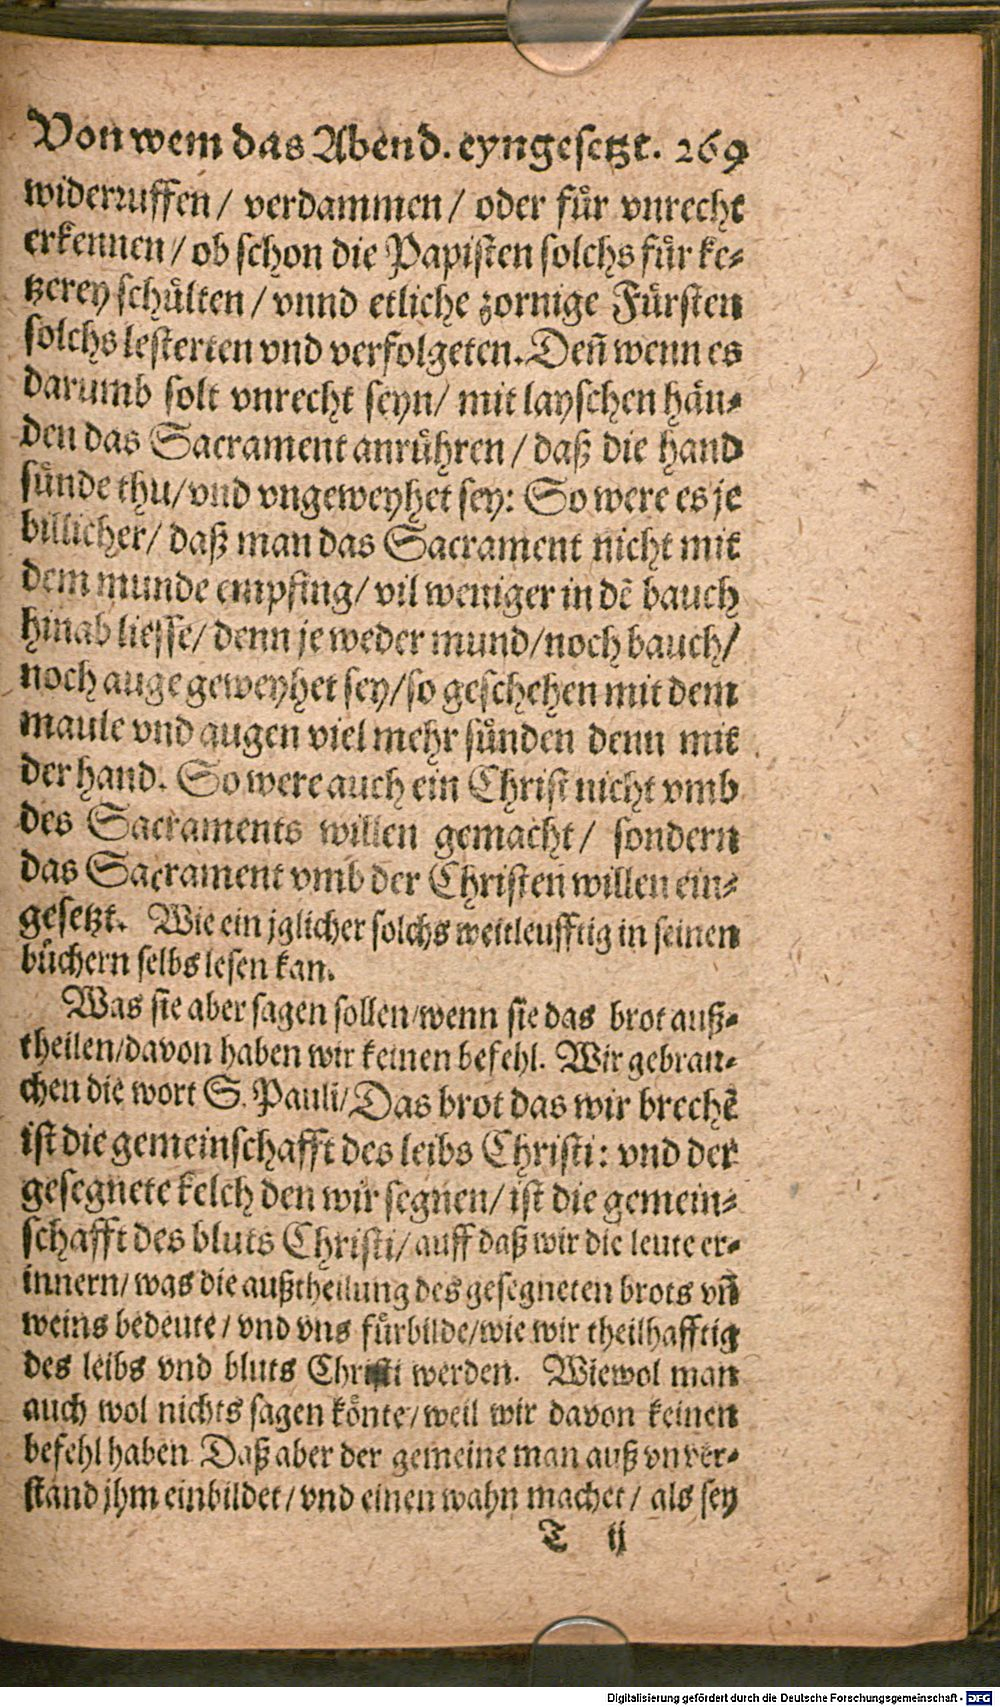 Von wem das Abend. eyngesetzt. 269
widerruffen/ verdammen/ oder für vnrecht
erkennen/ ob schon die Papisten solchs für ke-
tzerey schülten/ vnnd etliche zornige Fürsten
solchs lesterten vnd verfolgeten. Deñ wenn es
darumb solt vnrecht seyn/ mit layschen hän-
den das Sacrament anrühren/ daß die hand
sünde thu/ vnd vngeweyhet sey: So were es je
billicher/ daß man das Sacrament nicht mit
dem munde empfing/ vil weniger in dẽ bauch
hinab liesse/ denn je weder mund/ noch bauch/
noch auge geweyhet sey/ so geschehen mit dem
maule vnd augen viel mehr sünden denn mit
der hand. So were auch ein Christ nicht vmb
des Sacraments willen gemacht/ sondern
das Sacrament vmb der Christen willen ein-
gesetzt. Wie ein jglicher solchs weitleufftig in seinen
büchern selbs lesen kan.
Was sie aber sagen sollen/ wenn sie das brot auß-
theilen/ davon haben wir keinen befehl. Wir gebrau-
chen die wort S. Pauli/ Das brot das wir brechẽ
ist die gemeinschafft des leibs Christi: vnd der
gesegnete kelch den wir segnen/ ist die gemein-
schafft des bluts Christi/ auff daß wir die leute er-
innern/ was die außtheilung des gesegneten brots vñ
weins bedeute/ vnd vns fürbilde/ wie wir theilhafftig
des leibs vnd bluts Christi werden. Wiewol man
auch wol nichts sagen könte/ weil wir davon keinen
befehl haben Daß aber der gemeine man auß vnver-
stand jhm einbildet/ vnd einen wahn machet/ als sey
T ij
Digitalisierung gefördert durch die Deutsche Forschungsgemeinschaft - DFG